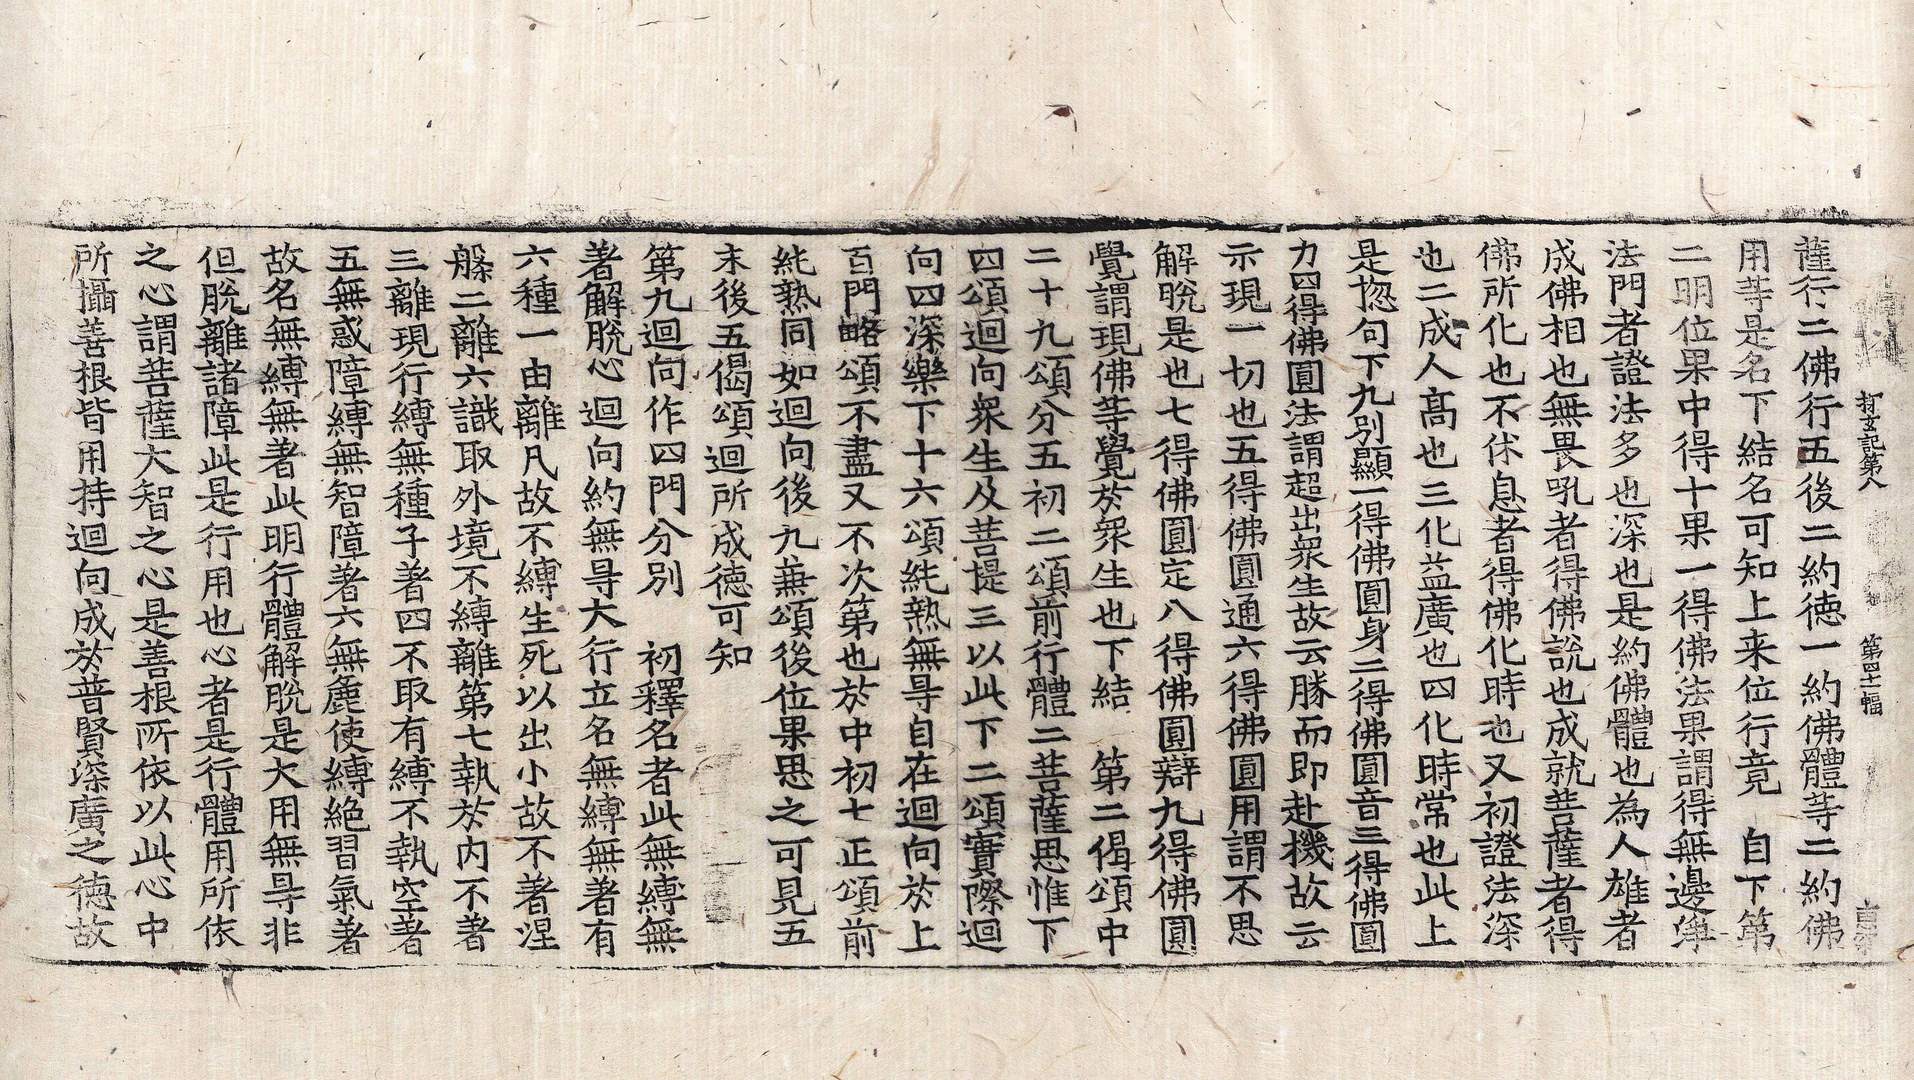 探玄記第八 第四十二幅
薩行二佛行五後二約德一約佛體等二約佛
用等是名下結名可知上来位行竟 自下第
二明位果中得十果一得佛法果謂得無邊淨
法門者證法多也深也是約佛體也為人雄者
成佛相也無畏吼者得佛說也成就菩薩者得
佛所化也不休息者得佛化時也又初證法深
也二成人髙也三化益廣也四化時常也此上
是揔句下九別顯一得佛圓身二得佛圓音三得佛圓
力四得佛圓法謂超出衆生故云勝而即赴機故云
示現一切也五得佛圓通六得佛圓用謂不思
解脫是也七得佛圓定八得佛圓辯九得佛圓
覺謂現佛等覺於衆生也下結 第二偈頌中
二十九頌分五初二頌前行體二菩薩思惟下
四頌迴向衆生及菩提三以此下二頌實際迴
向四深樂下十六頌純熟無㝵自在迴向於上
百門略頌不盡又不次第也於中初七正頌前
純熟同如迴向後九兼頌後位果思之可見五
末後五偈頌迴所成德可知
第九迴向作四門分別 初釋名者此無縛無
著解脫心迴向約無㝵大行立名無縛無著有
六種一由離凡故不縛生死以出小故不著涅
槃二離六識取外境不縛離第七執於內不著
三離現行縛無種子著四不取有縛不執空著
五無惑障縛無智障著六無麁使縛絕習氣著
故名無縛無著此明行體解脫是大用無㝵非
但脫離諸障此是行用也心者是行體用所依
之心謂菩薩大智之心是善根所依以此心中
所攝善根皆用持迴向成於普賢深廣之德故